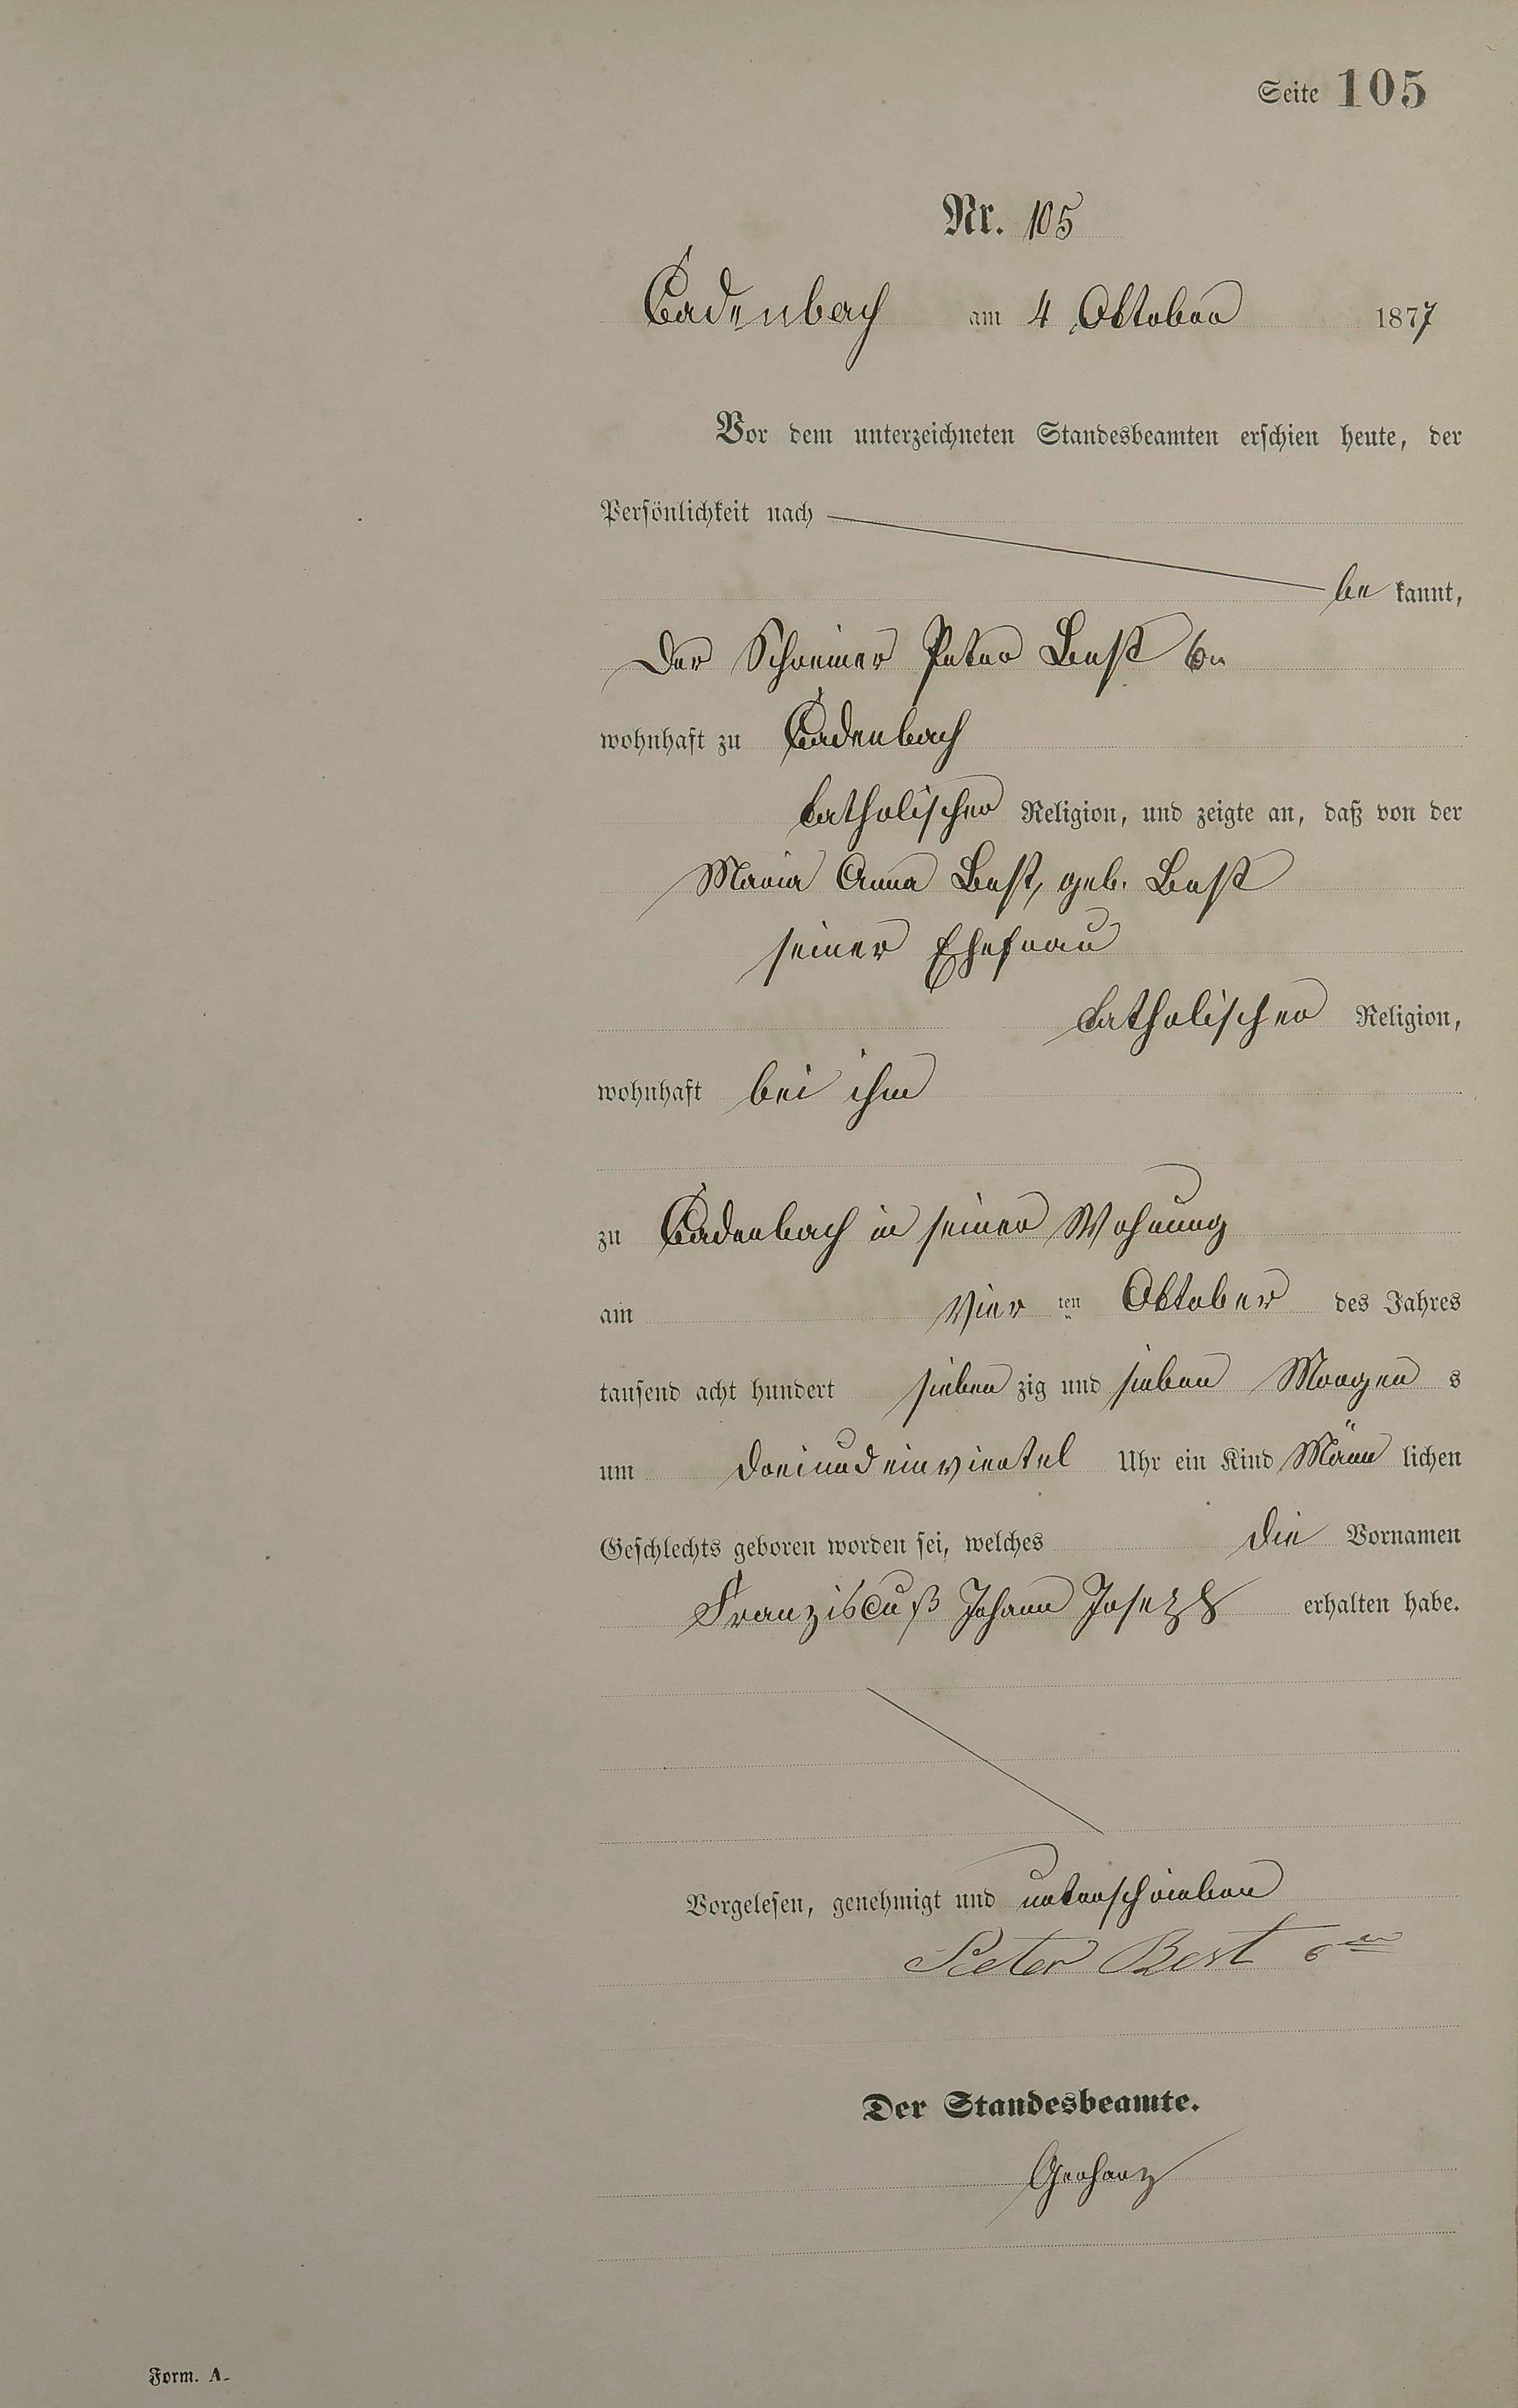 Seite 105
Nr. 105
Cadenbach am 4 Oktober 1877
Vor dem unterzeichneten Standesbeamten erschien heute, der
Persönlichkeit nach
be kannt,
Der Schreiner Peter Best 6n
wohnhaft zu Cadenbach
katholischer Religion, und zeigte an, daß von der
Maria Anna Best, geb. Best
seiner Ehefrau
katholischer Religion,
wohnhaft bei ihm
zu Cadenbach in seiner Wohnung
am Vier ten Oktober des Jahres
tausend acht hundert sieben zig und sieben Morgen s
um dreiundeinviertel Uhr ein Kind Männ lichen
Geschlechts geboren worden sei, welches die Vornamen
Franziscuß Johann Joseph erhalten habe.
Vorgelesen, genehmigt und unterschrieben
Peter Best 6ten
Der Standesbeamte.
Gerharz
Form. A.